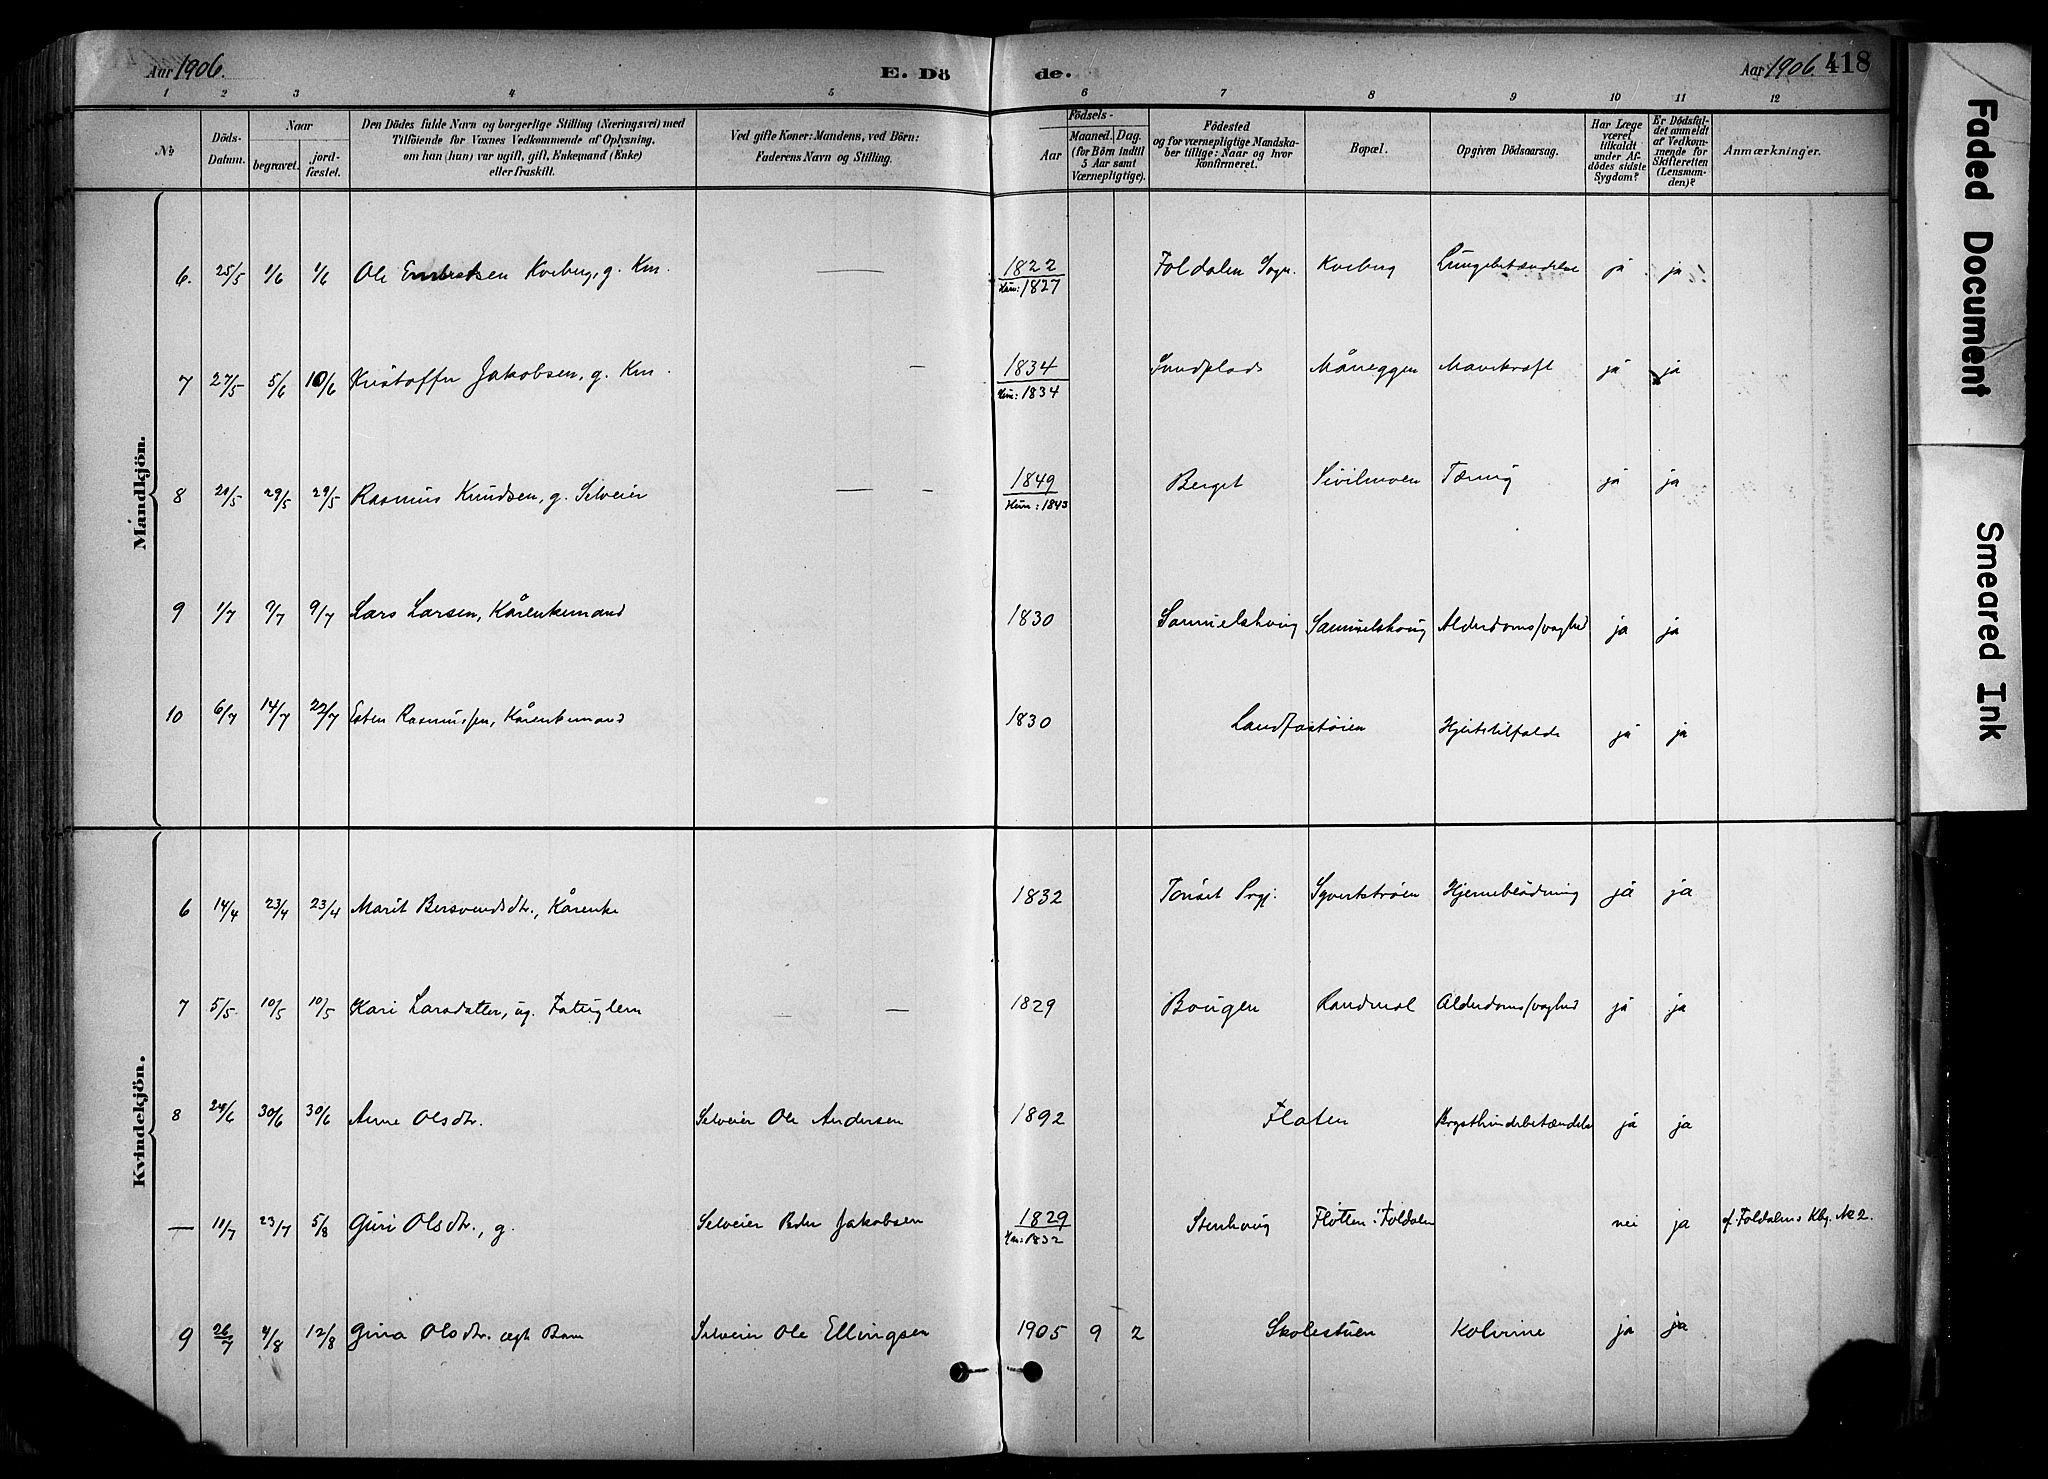 Aar 1906.
E. Dö
de.
Aar 1906. 418
1 2 3 4 5 6 7 8 9 10 11 12
№
Döds-
Datum.
Naar
begravet.
jord-
fæstet.
Den Dödes fulde Navn og borgerlige Stilling (Næringsvei) med
Tilföiende for Voxnes Vedkommende af Oplysning,
om han (hun) var ugift, gift, Enkemand (Enke)
eller fraskilt.
Ved gifte Koner: Mandens, ved Börn:
Faderens Navn og Stilling.
Födsels-
Aar
Maaned. Dag.
(for Börn indtil
5 Aar samt
Værnepligtige).
Födested
og for værnepligtige Mandska-
ber tillige: Naar og hvor
konfirmeret.
Bopæl.
Opgiven Dödsaarsag.
Har Læge
været
tilkaldt
under Af-
dödes sidste
Sygdom?
Er Dödsfal-
det anmeldt
af Vedkom-
mende for
Skifteretten
(Lensman-
den)?
Anmærkninger.
Mandkjön.
6. 25/5 1/6 1/6 Ole Embretsen Kveberg, g. Km. — 1822 Foldalen Sogn. Kveberg Lungebetændelse ja ja
Kun: 1827
7 27/5 5/6 10/6 Kristoffer Jakobsen, g. Km. — 1834 Sundplads Måneggen Mavekræft ja ja
Kun: 1834
8 20/5 29/5 29/5 Rasmus Knudsen, g. Selveier — — 1849 Berget Sivilmoen Tæring ja ja
Kun: 1843
9 1/7 9/7 9/7 Lars Larsen, Kårenkemand 1830 Samuelshoug Samuelshoug Alderdomssvaghed ja ja
10 6/7 14/7 22/7 Esten Rasmussen, Kårenkemand 1830 Landfastøien Hjertetilfælde ja ja
Kvindekjön.
6 14/4 23/4 23/4 Marit Bersvendsdtr., Kårenke 1832 Tønset Prgj. Syvertstrøen Hjerneblødning ja ja
7 5/5. 10/5 10/5 Kari Larsdatter, ug. Fattiglem — — 1829 Bougen Randmel Alderdomssvaghed ja ja
8 24/6 30/6 30/6 Anne Olsdtr. Selveier Ole Andersen 1892 Flaten Brysthindebetændelse ja ja
— 10/7 23/7 5/8 Guri Olsdtr., g. Selveier Peder Jakobsen 1829 Stenhoug Fløtten i Foldalen nei ja cf. Foldalens Kbg. № 2.
Kun: 1832
9 26/7 4/8 12/8 Gina Olsdtr. ægt. Barn Selveier Ole Ellingsen 1905 9 2 Skolestuen Kolerine ja ja
Faded Document
Smeared Ink